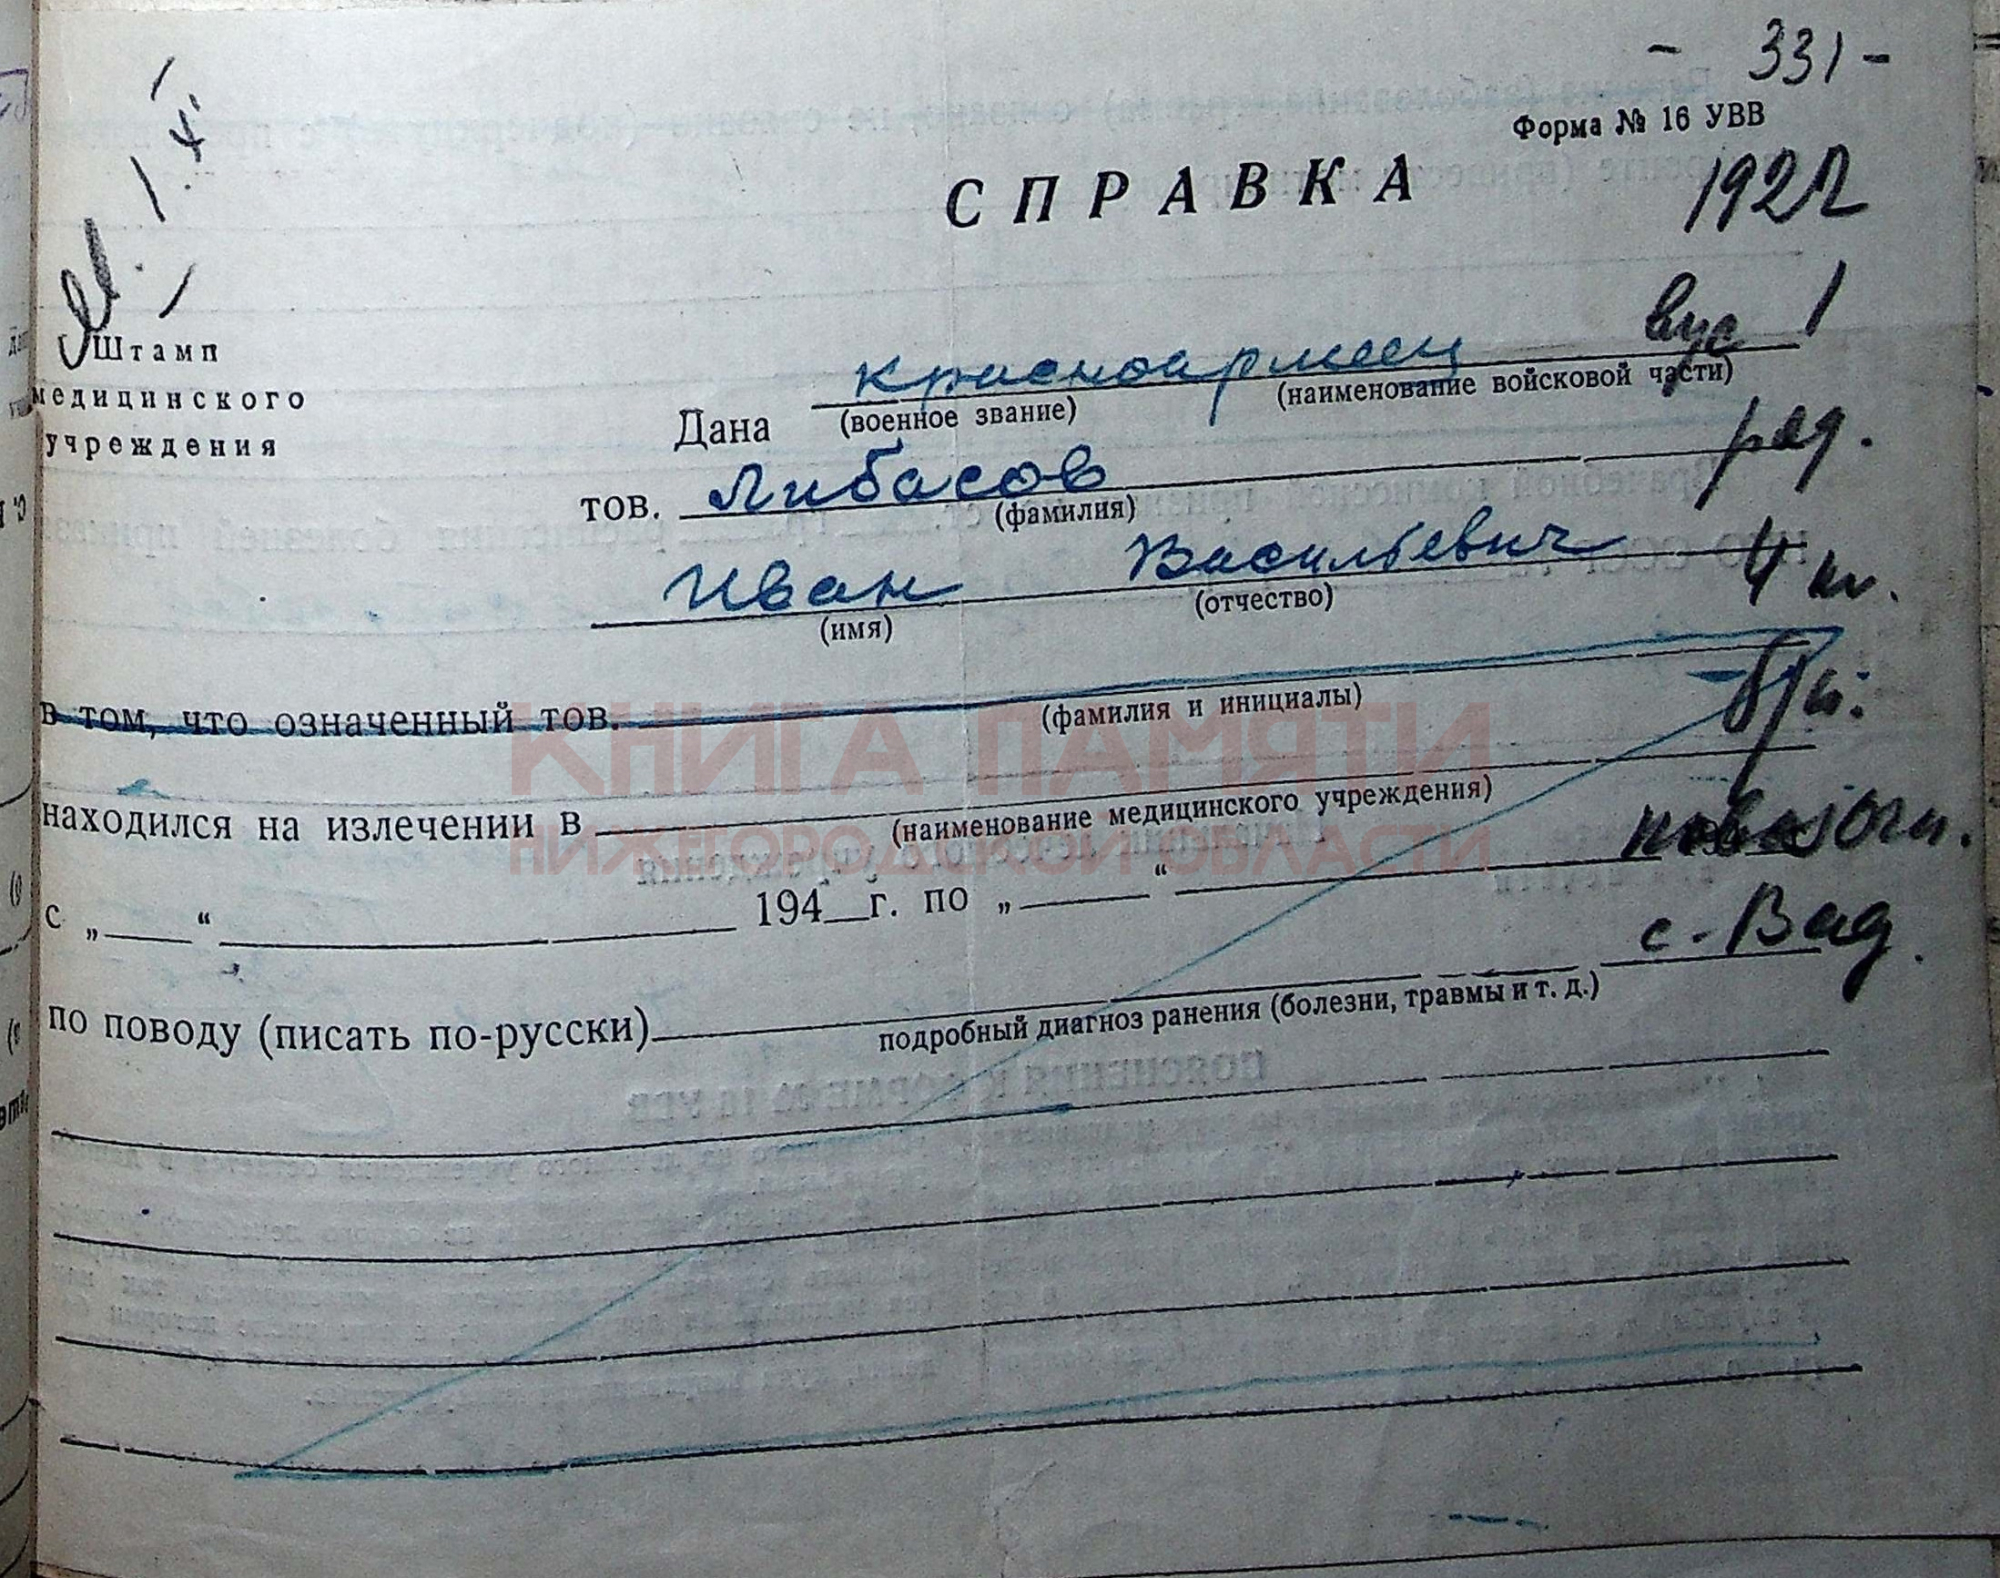 - 331 -
Форма № 16 УВВ
СПРАВКА
1922
Штамп
медицинского
учреждения
вус 1
Дана красноармеец
(военное звание) (наименование войсковой части)
ряд.
тов. Либасов
(фамилия)
Иван Васильевич
(имя) (отчество)
4 кл.
в том, что означенный тов.
(фамилия и инициалы)
КНИГА ПАМЯТИ
находился на излечении в
(наименование медицинского учреждения)
НИЖЕГОРОДСКОЙ ОБЛАСТИ
с „ “ 194 г. по „ “
с. Вад.
по поводу (писать по-русски)
подробный диагноз ранения (болезни, травмы и т. д.)